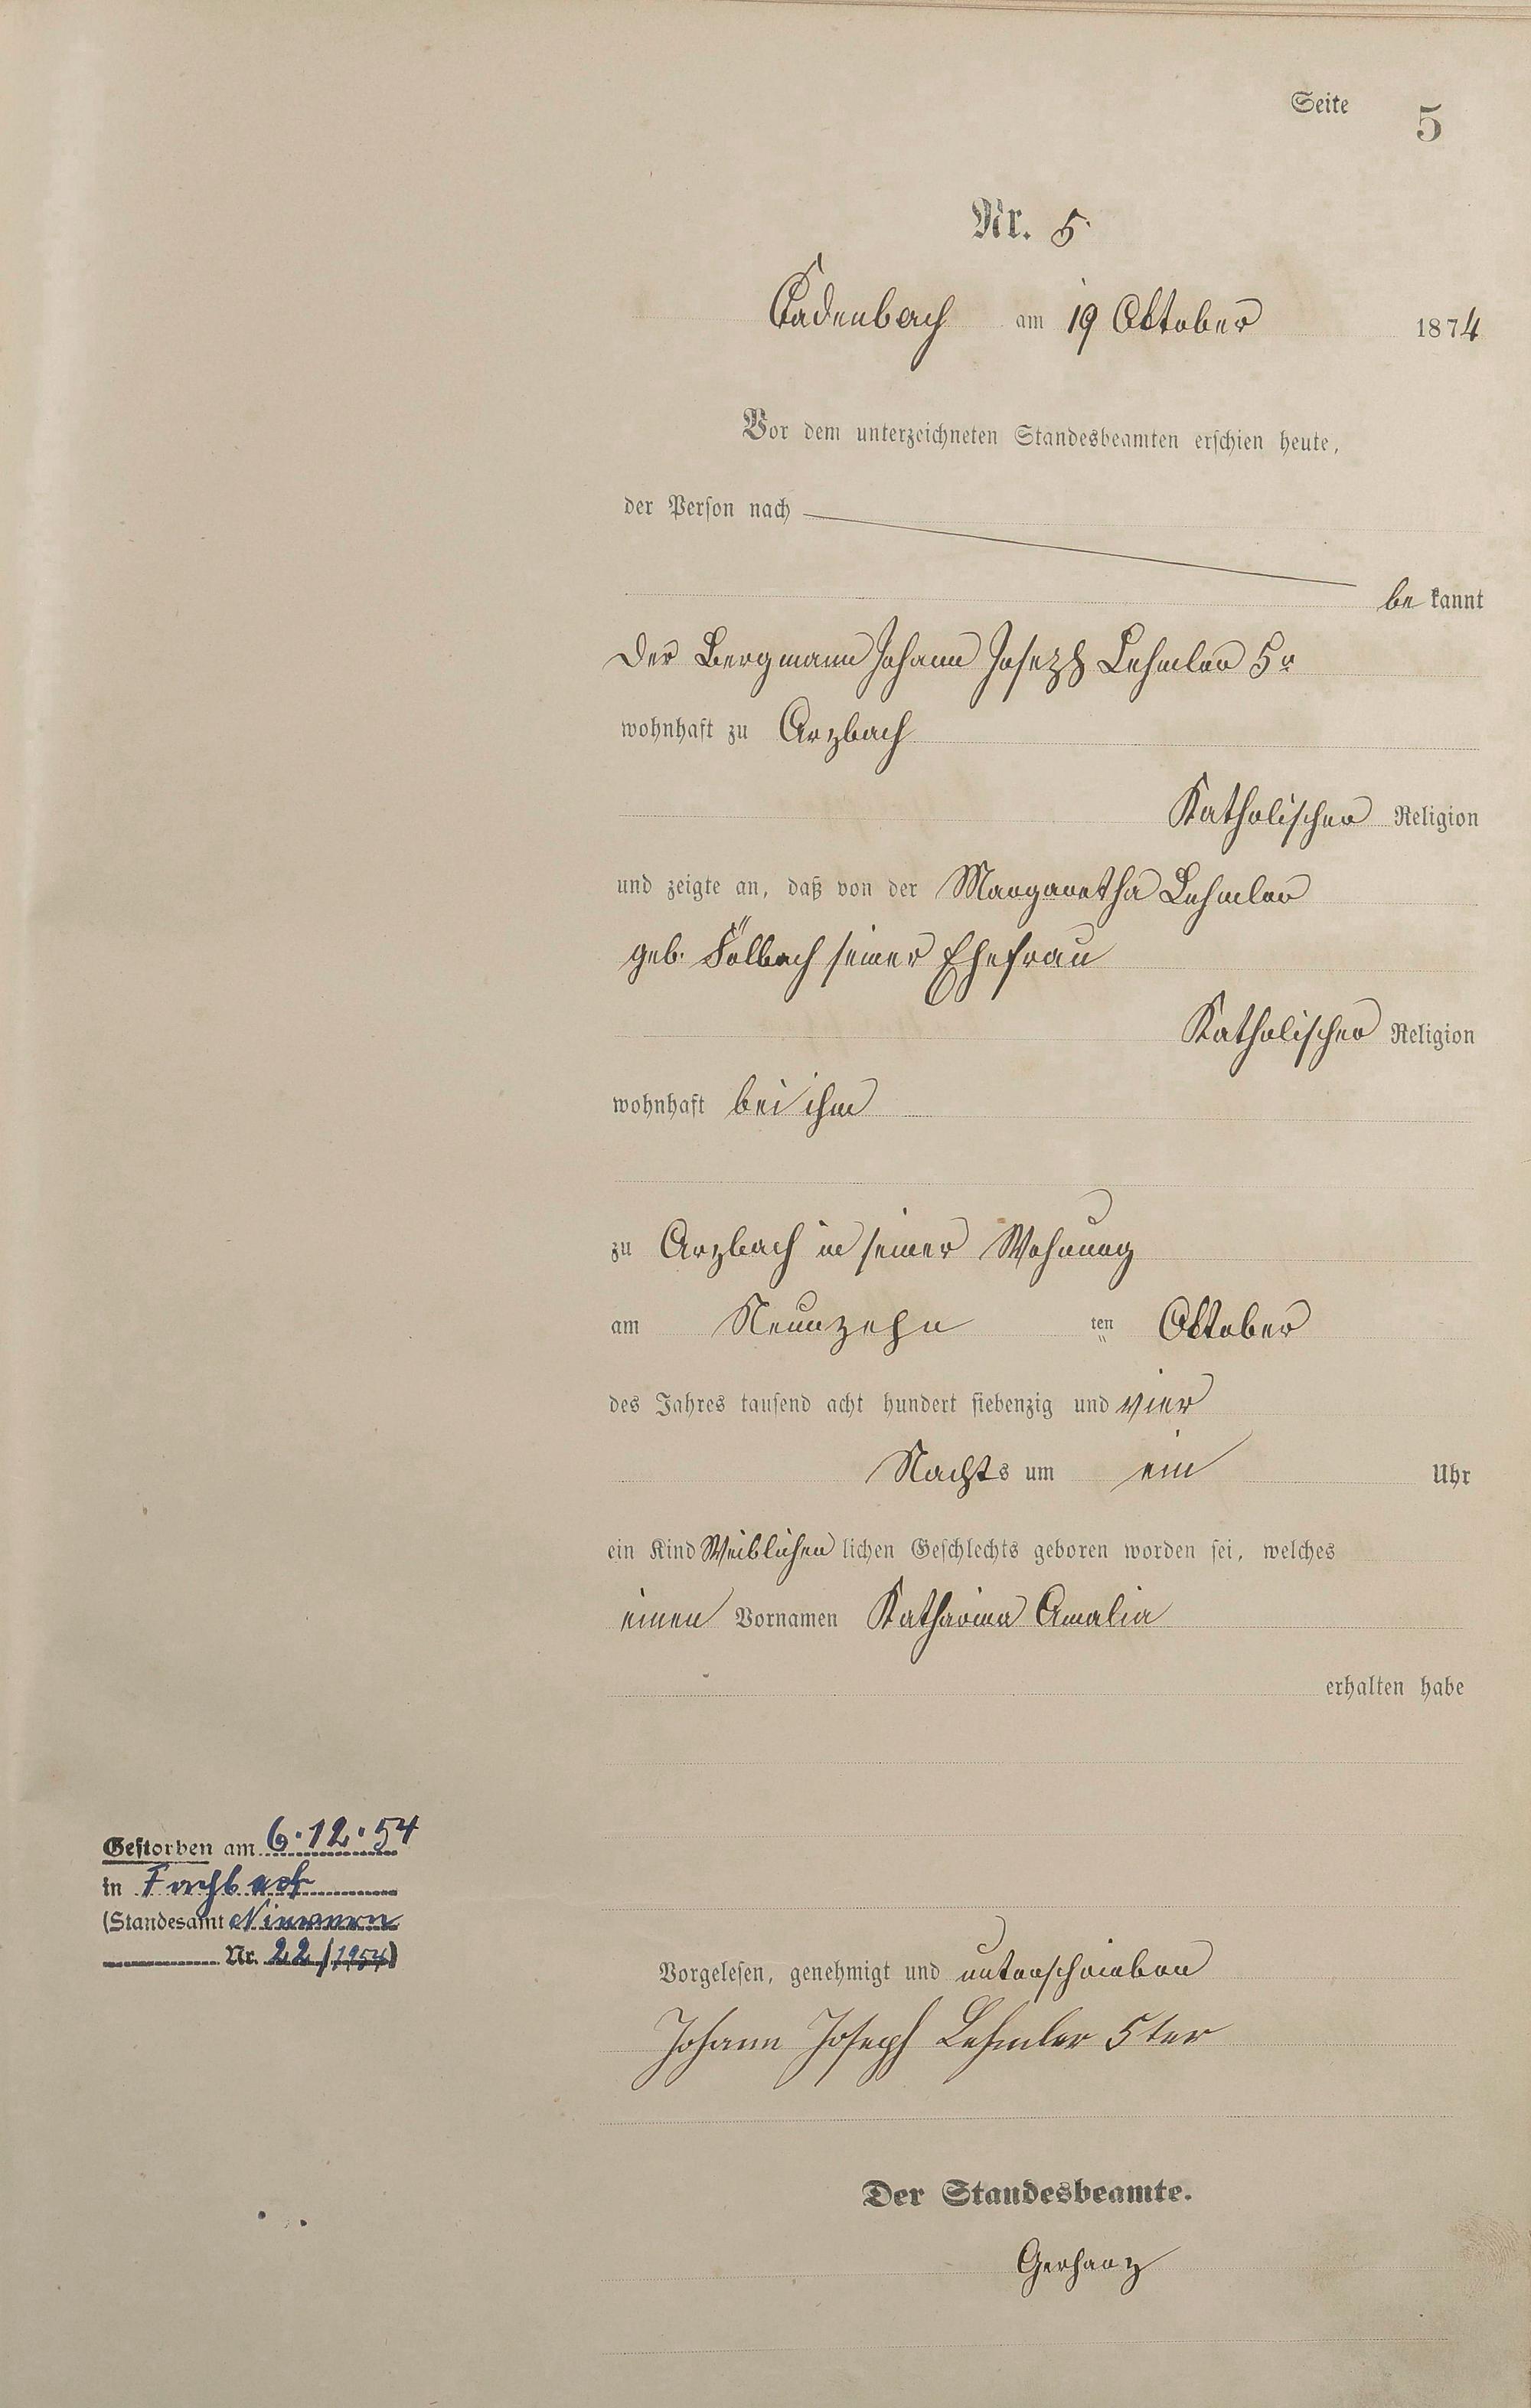 Seite 5
Nr. 5.
Cadenbach am 19 Oktober 1874
Vor dem unterzeichneten Standesbeamten erschien heute,
der Person nach
be kannt
der Bergmann Johann Joseph Lehmler 5r
wohnhaft zu Arzbach
Katholischer Religion
und zeigte an, daß von der Margaretha Lehmler
geb. Fölbach seiner Ehefrau
Katholischer Religion
wohnhaft bei ihm
zu Arzbach in seiner Wohnung
am Neunzehn ten Oktober
des Jahres tausend acht hundert siebenzig und vier
Nachts um ein Uhr
ein Kind Weiblichen lichen Geschlechts geboren worden sei, welches
einen Vornamen Katharina Amalia
erhalten habe
Gestorben am 6.12.54
in Fachbach
(Standesamt Nievern
Nr. 22/1954)
Vorgelesen, genehmigt und unterschrieben
Johann Joseph Lehmler 5ter
Der Standesbeamte.
Gerharz